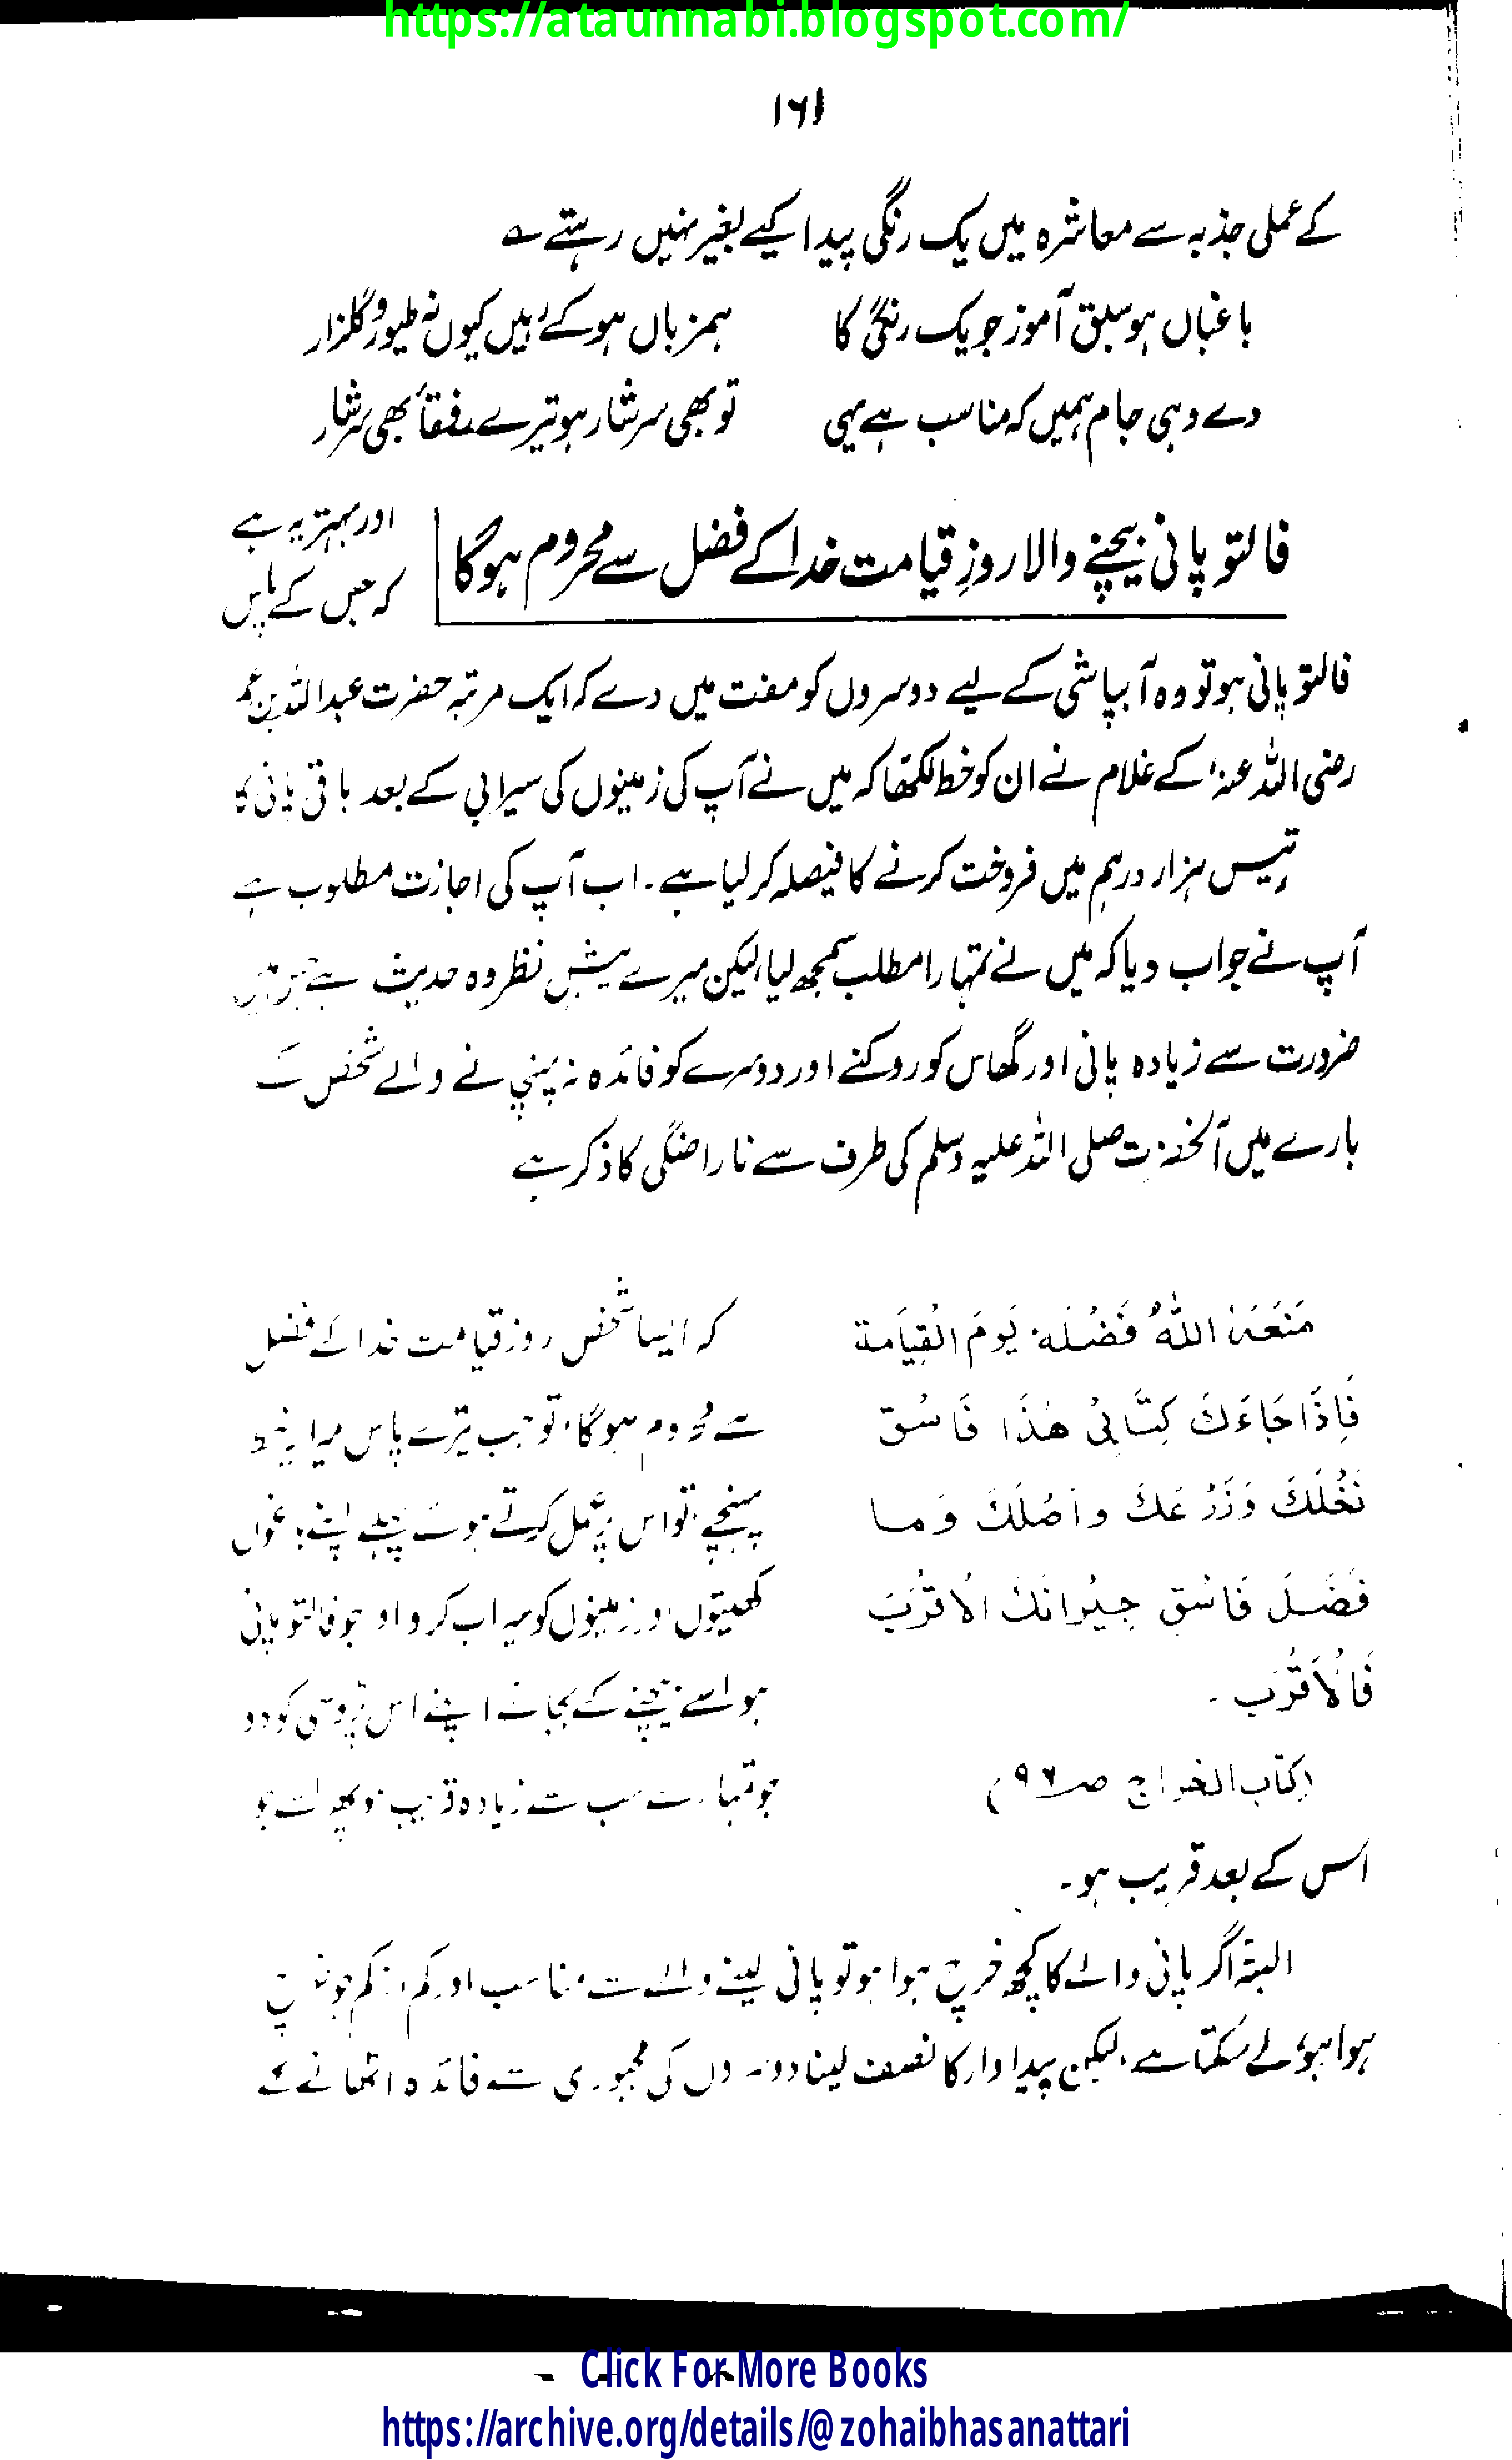 https://ataunnabi.blogspot.com/
۱۶۱
کے عملی جذبہ سے معاشرہ میں یک رنگی پیدا کیے بغیر نہیں رہتے ؎
باغباں ہو سبق آموز جو یک رنگی کا ہمزباں ہو کے رہیں کیوں نہ طیور گلزار
دے وہی جام ہمیں کہ مناسب ہے یہی تو بھی سرشار ہو تیرے رفقأ بھی سرشار
فالتو پانی بیچنے والا روزِ قیامت خدا کے فضل سے محروم ہوگا
اور بہتر یہ ہے
کہ جس کے پاس
فالتو پانی ہو تو وہ آبپاشی کے لیے دوسروں کو مفت میں دے کہ ایک مرتبہ حضرت عبداللہ بن عمر
رضی اللہ عنہ، کے غلام نے ان کو خط لکھا کہ میں نے آپ کی زمینوں کی سیرابی کے بعد باقی پانی کا
تیس ہزار درہم میں فروخت کرنے کا فیصلہ کر لیا ہے۔ اب آپ کی اجازت مطلوب ہے
آپ نے جواب دیا کہ میں نے تمہارا مطلب سمجھ لیا، لیکن میرے پیش نظر وہ حدیث ہے جس میں
ضرورت سے زیادہ پانی اور گھاس کو روکنے اور دوسرے کو فائدہ نہ پہنچانے والے شخص کے
بارے میں آنحضرت صلی اللہ علیہ وسلم کی طرف سے ناراضگی کا ذکر ہے
مَنَعَہُ اللہُ فَضْلَہٗ یَومَ القِیَامة
فَاِذَا جَاءَكَ کِتَابِیْ ھٰذَا فَاسْقِ
نَخْلَكَ وَزَرْعَكَ واَصْلَكَ وَما
فَضَلَ فَاسْقِ جِیْرانَكَ الْاَقْرَبَ
فَالْاَقْرَبَ ۔
(کتاب الخراج صـ ۹۶)
کہ ایسا شخص روز قیامت خدا کے فضل
سے محروم ہوگا، تو جب تیرے پاس میرا یہ خط
پہنچے، تو اس پر عمل کرتے ہوئے پہلے اپنے باغوں
کھیتوں اور زمینوں کو سیراب کرو اور جو فالتو پانی
ہو اسے بیچنے کے بجائے اپنے اس پڑوسی کو دو
جو تمہارے سب سے زیادہ قریب ہو پھر اسے جو
اس کے بعد قریب ہو۔
البتہ اگر پانی والے کا کچھ خرچ ہوا ہو تو پانی لینے والے سے مناسب اور کم از کم جو خرچ
ہوا ہو، لے سکتا ہے، لیکن پیداوار کا نصف لینا دوسروں کی مجبوری سے فائدہ اٹھانے کے
Click For More Books
https://archive.org/details/@zohaibhasanattari